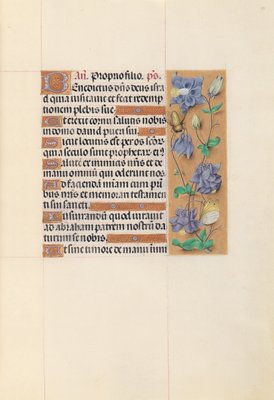 An. Proprio filio. ps.
Benedictus dn̄s deus isra
el quia visitauit et fecit redemp
tionem plebis sue.
Et erexit cornu salutis nobis
in domo dauid pueri sui.
Sicut locutus est per os sctōr
qui a seculo sunt prophetarū eiꝰ.
Salutē ex inimicis nr̄is et de
manu omniū qui oderunt nos.
Ad faciendā miām cum pr̄i
bus nr̄is et memorari testamen
ti sui sancti.
Iusiurandū quod iurauit
ad abraham patrem nostrū da
turum se nobis.
Ut sine timore de manu inimi